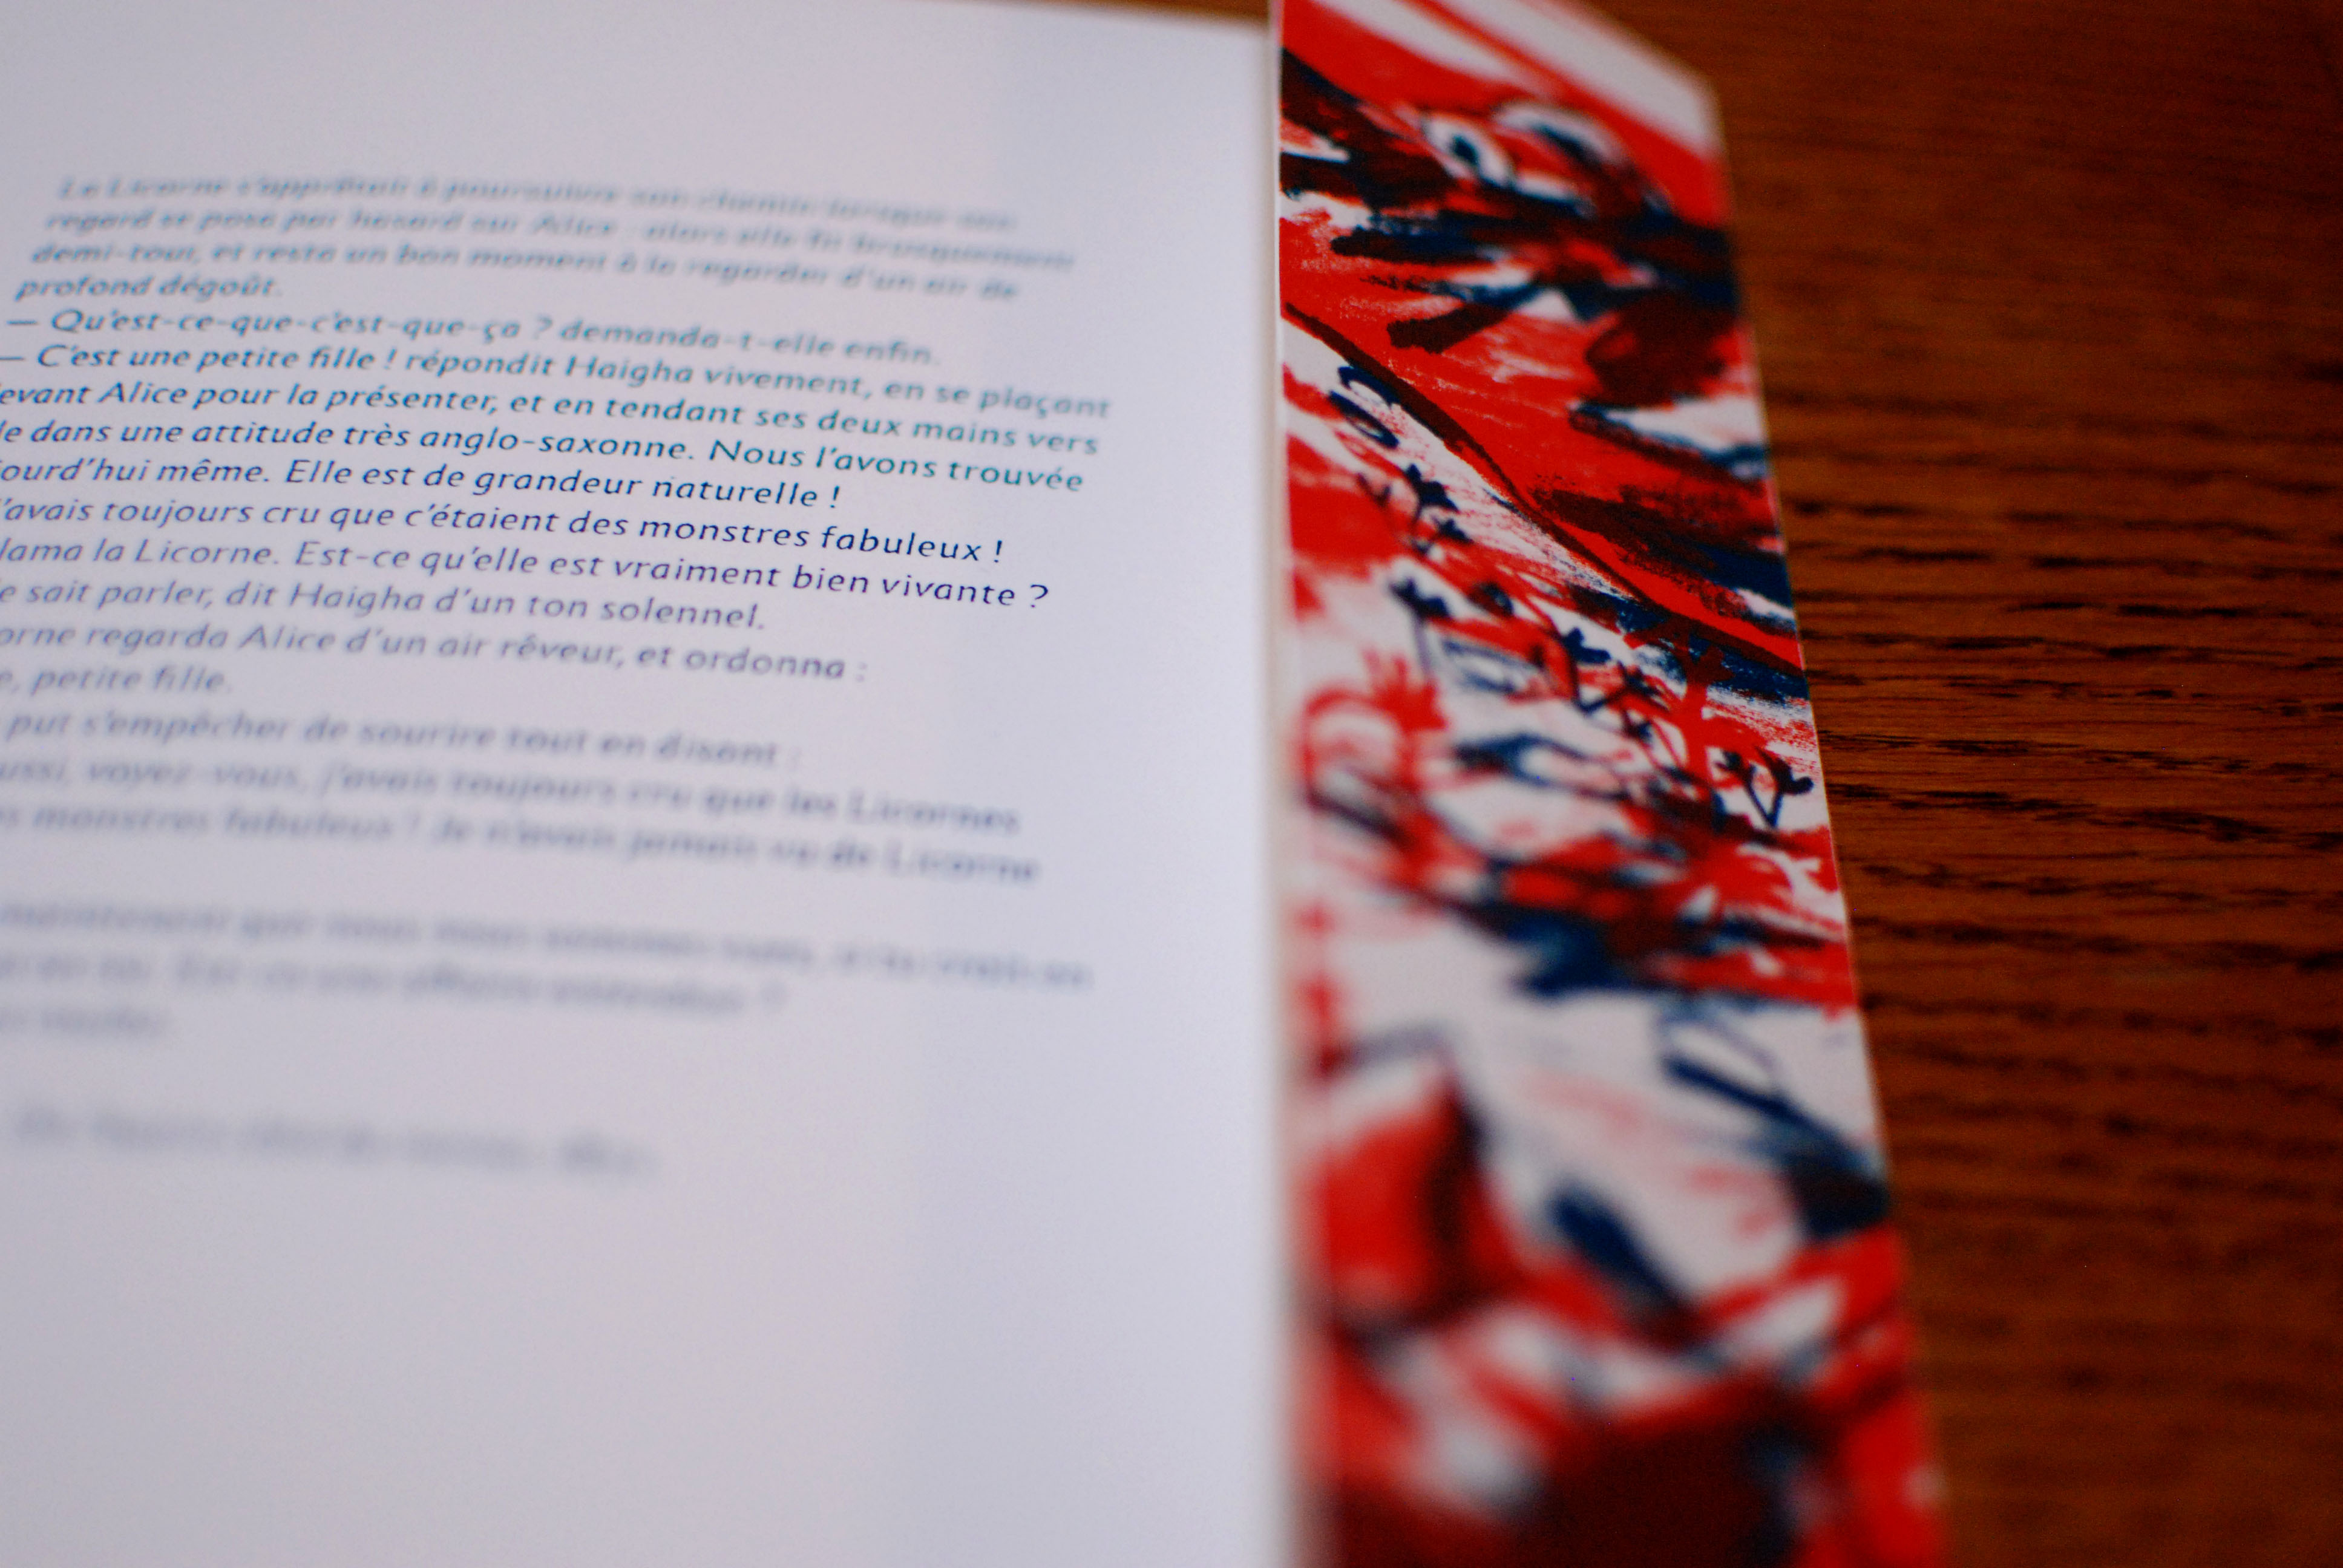 La Licorne s'apprêtait à poursuivre son chemin lorsque son
regard se posa par hasard sur Alice : alors elle fit brusquement
demi-tour, et resta un bon moment à la regarder d'un air de
profond dégoût.
— Qu'est-ce-que-c'est-que-ça ? demanda-t-elle enfin.
— C'est une petite fille ! répondit Haigha vivement, en se plaçant
evant Alice pour la présenter, et en tendant ses deux mains vers
le dans une attitude très anglo-saxonne. Nous l'avons trouvée
ourd'hui même. Elle est de grandeur naturelle !
'avais toujours cru que c'étaient des monstres fabuleux !
lama la Licorne. Est-ce qu'elle est vraiment bien vivante ?
e sait parler, dit Haigha d'un ton solennel.
orne regarda Alice d'un air rêveur, et ordonna :
e, petite fille.
put s'empêcher de sourire tout en disant :
ussi, voyez-vous, j'avais toujours cru que les Licornes
s monstres fabuleux ! Je n'avais jamais vu de Licorne
maintenant que nous nous sommes vues, si tu crois en
en toi. Est-ce une affaire entendue ?